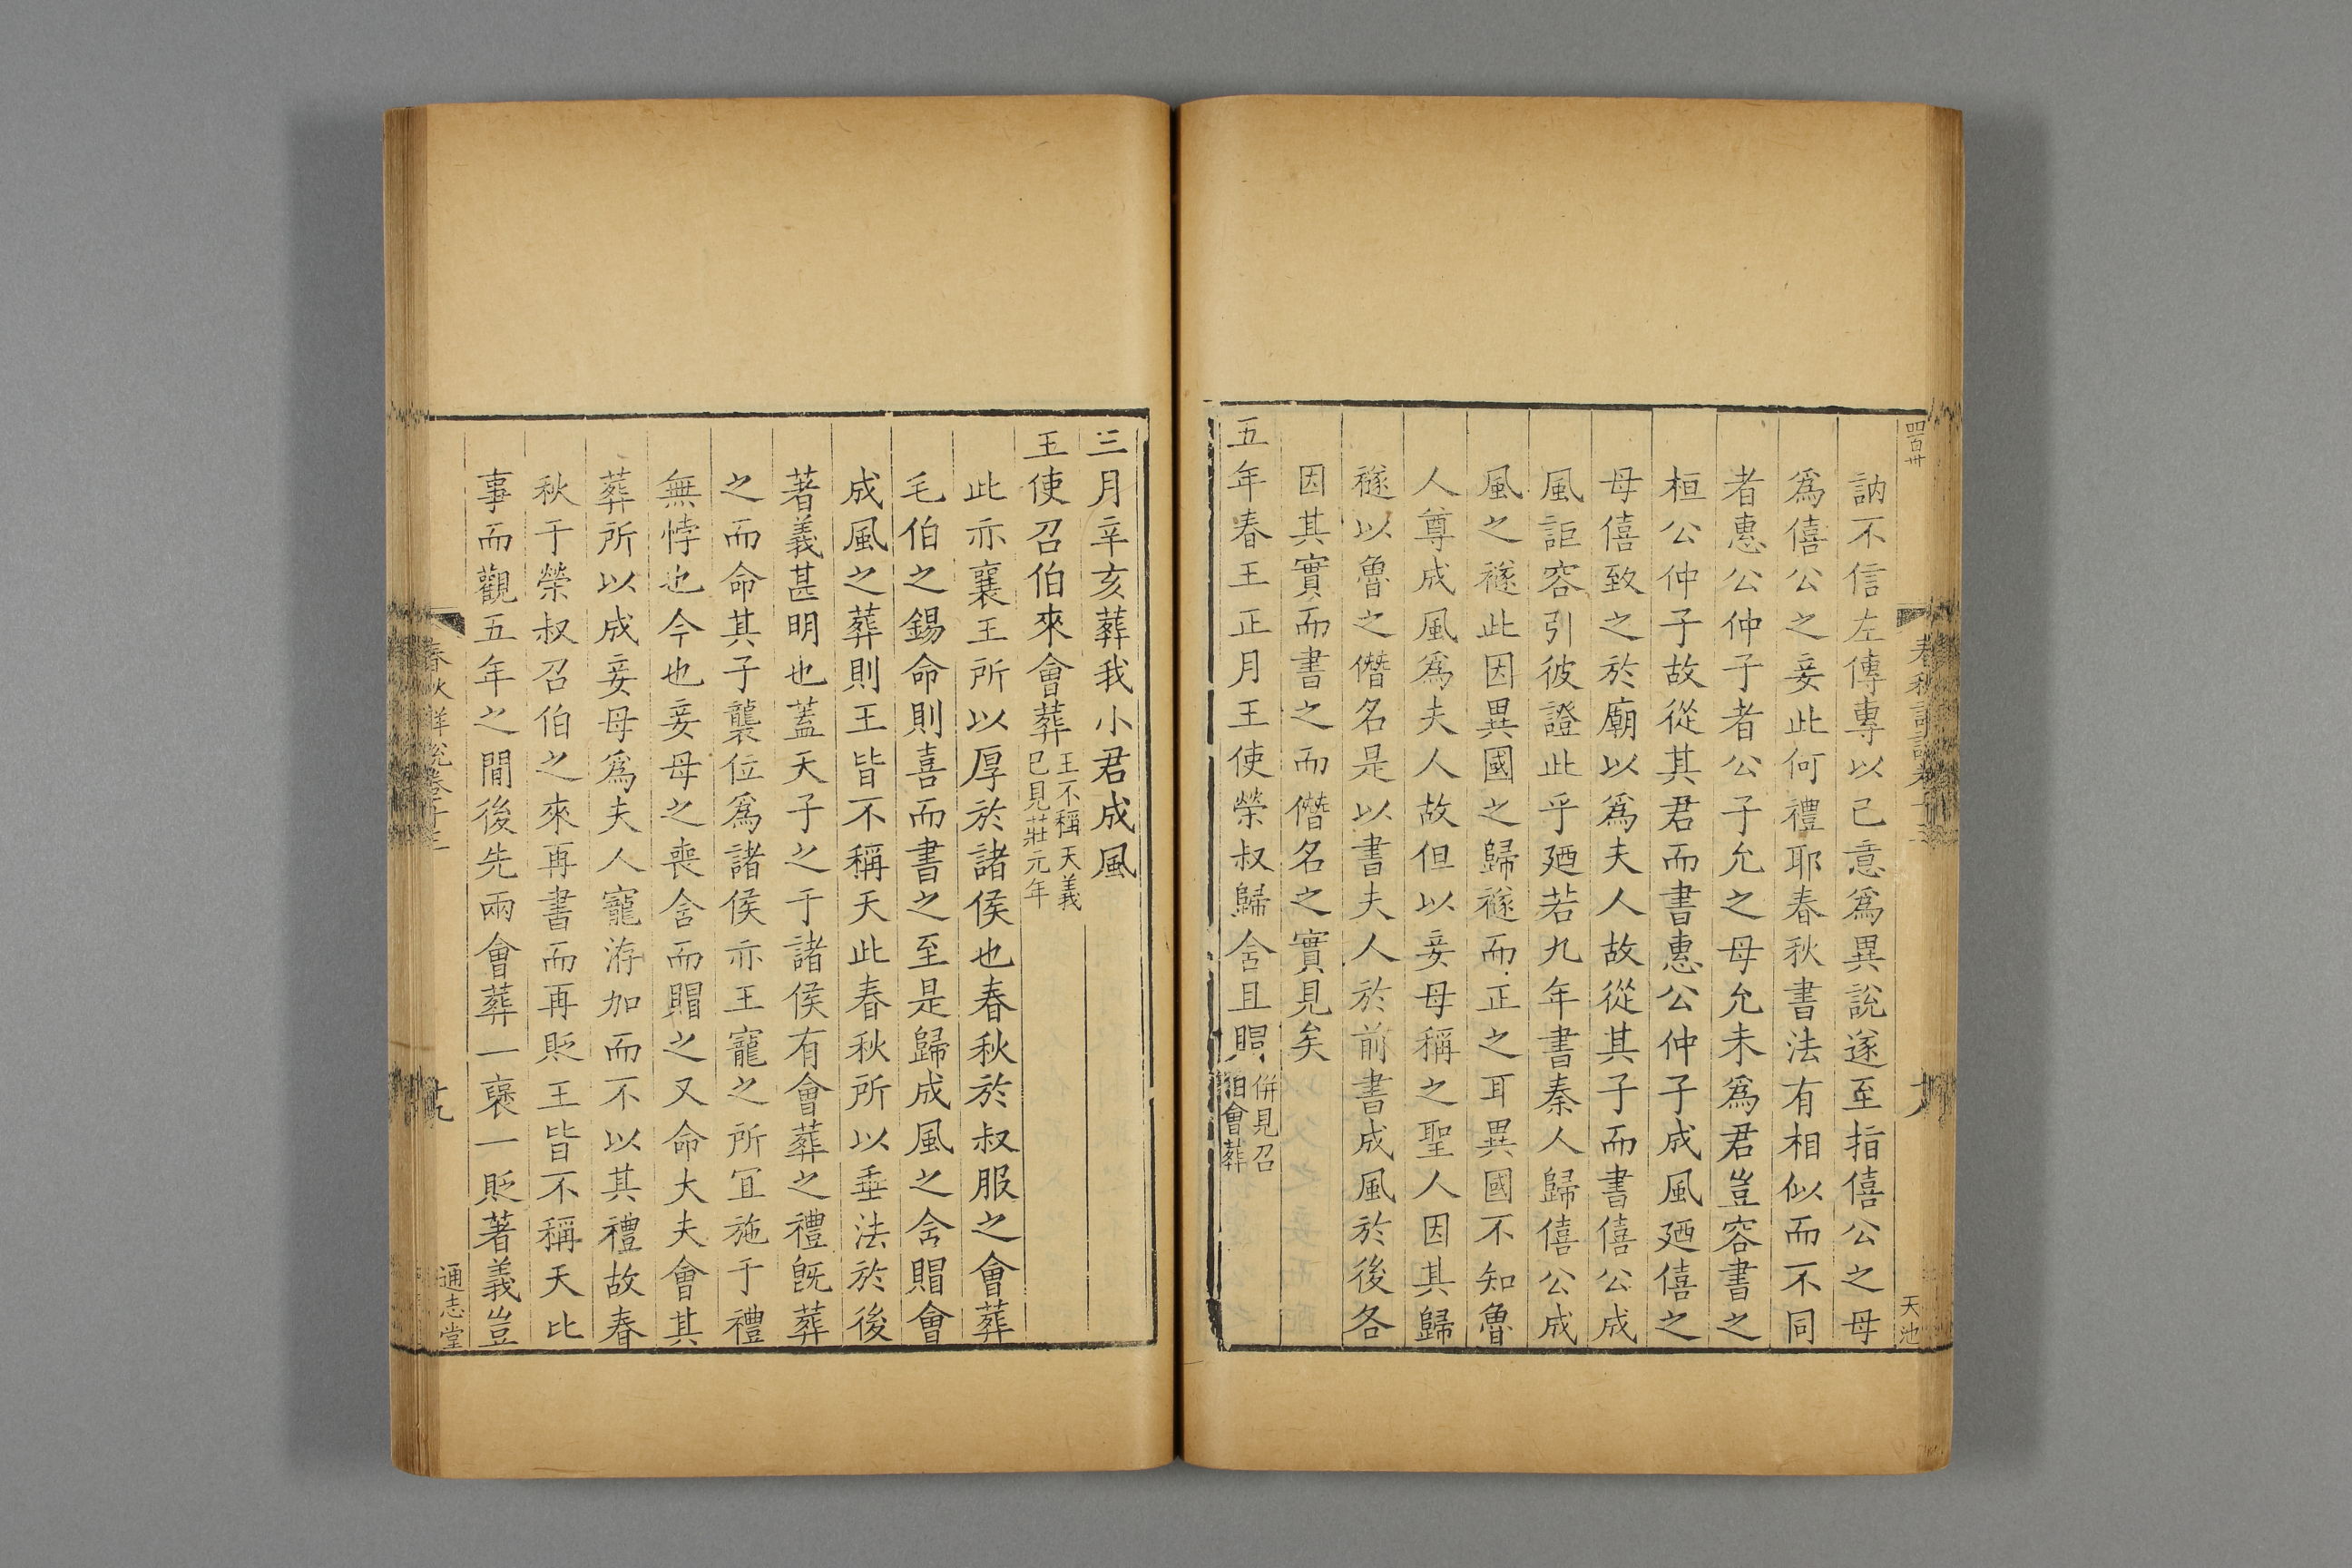 四百卅
訥不信左傳專以已意爲異說遂至指僖公之母
爲僖公之妾此何禮耶春秋書法有相似而不同
者惠公仲子者公子允之母允未爲君豈容書之
桓公仲子故從其君而書惠公仲子成風廼僖之
母僖致之於廟以爲夫人故從其子而書僖公成
風詎容引彼證此乎廼若九年書秦人歸僖公成
風之襚此因異國之歸襚而正之耳異國不知魯
人尊成風爲夫人故但以妾母稱之聖人因其歸
襚以魯之僭名是以書夫人於前書成風於後各
因其實而書之而僭名之實見矣
五年春王正月王使榮叔歸含且賵
併見召
伯會葬
天池
三月辛亥葬我小君成風
王使召伯來會葬
王不稱天義
已見莊元年
此亦襄王所以厚於諸侯也春秋於叔服之會葬
毛伯之錫命則喜而書之至是歸成風之含賵會
成風之葬則王皆不稱天此春秋所以垂法於後
著義甚明也蓋天子之于諸侯有會葬之禮旣葬
之而命其子襲位爲諸侯亦王寵之所宜施于禮
無悖也今也妾母之喪含而賵之又命大夫會其
葬所以成妾母爲夫人寵洊加而不以其禮故春
秋于榮叔召伯之來再書而再貶王皆不稱天比
事而觀五年之間後先兩會葬一襃一貶著義豈
春秋詳說卷十
通志堂